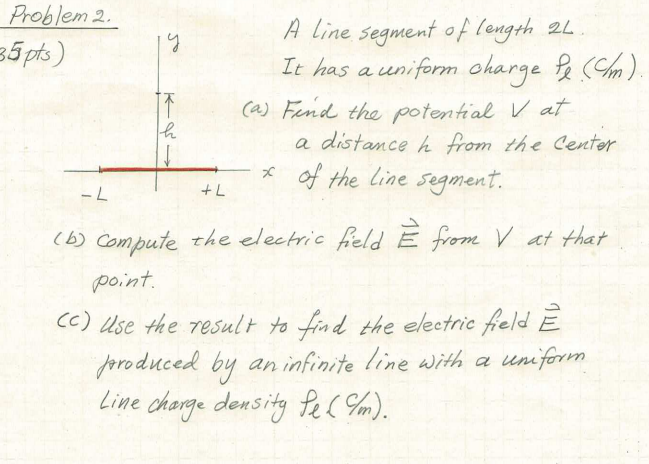 Problem 2.
35 pts)
y
h
x
-L
+L
A line segment of length 2L.
It has a uniform charge ρℓ (C/m).
(a) Find the potential V at
a distance h from the center
of the line segment.
(b) Compute the electric field E⃗ from V at that
point.
(c) Use the result to find the electric field E⃗
produced by an infinite line with a uniform
Line charge density ρℓ (C/m).